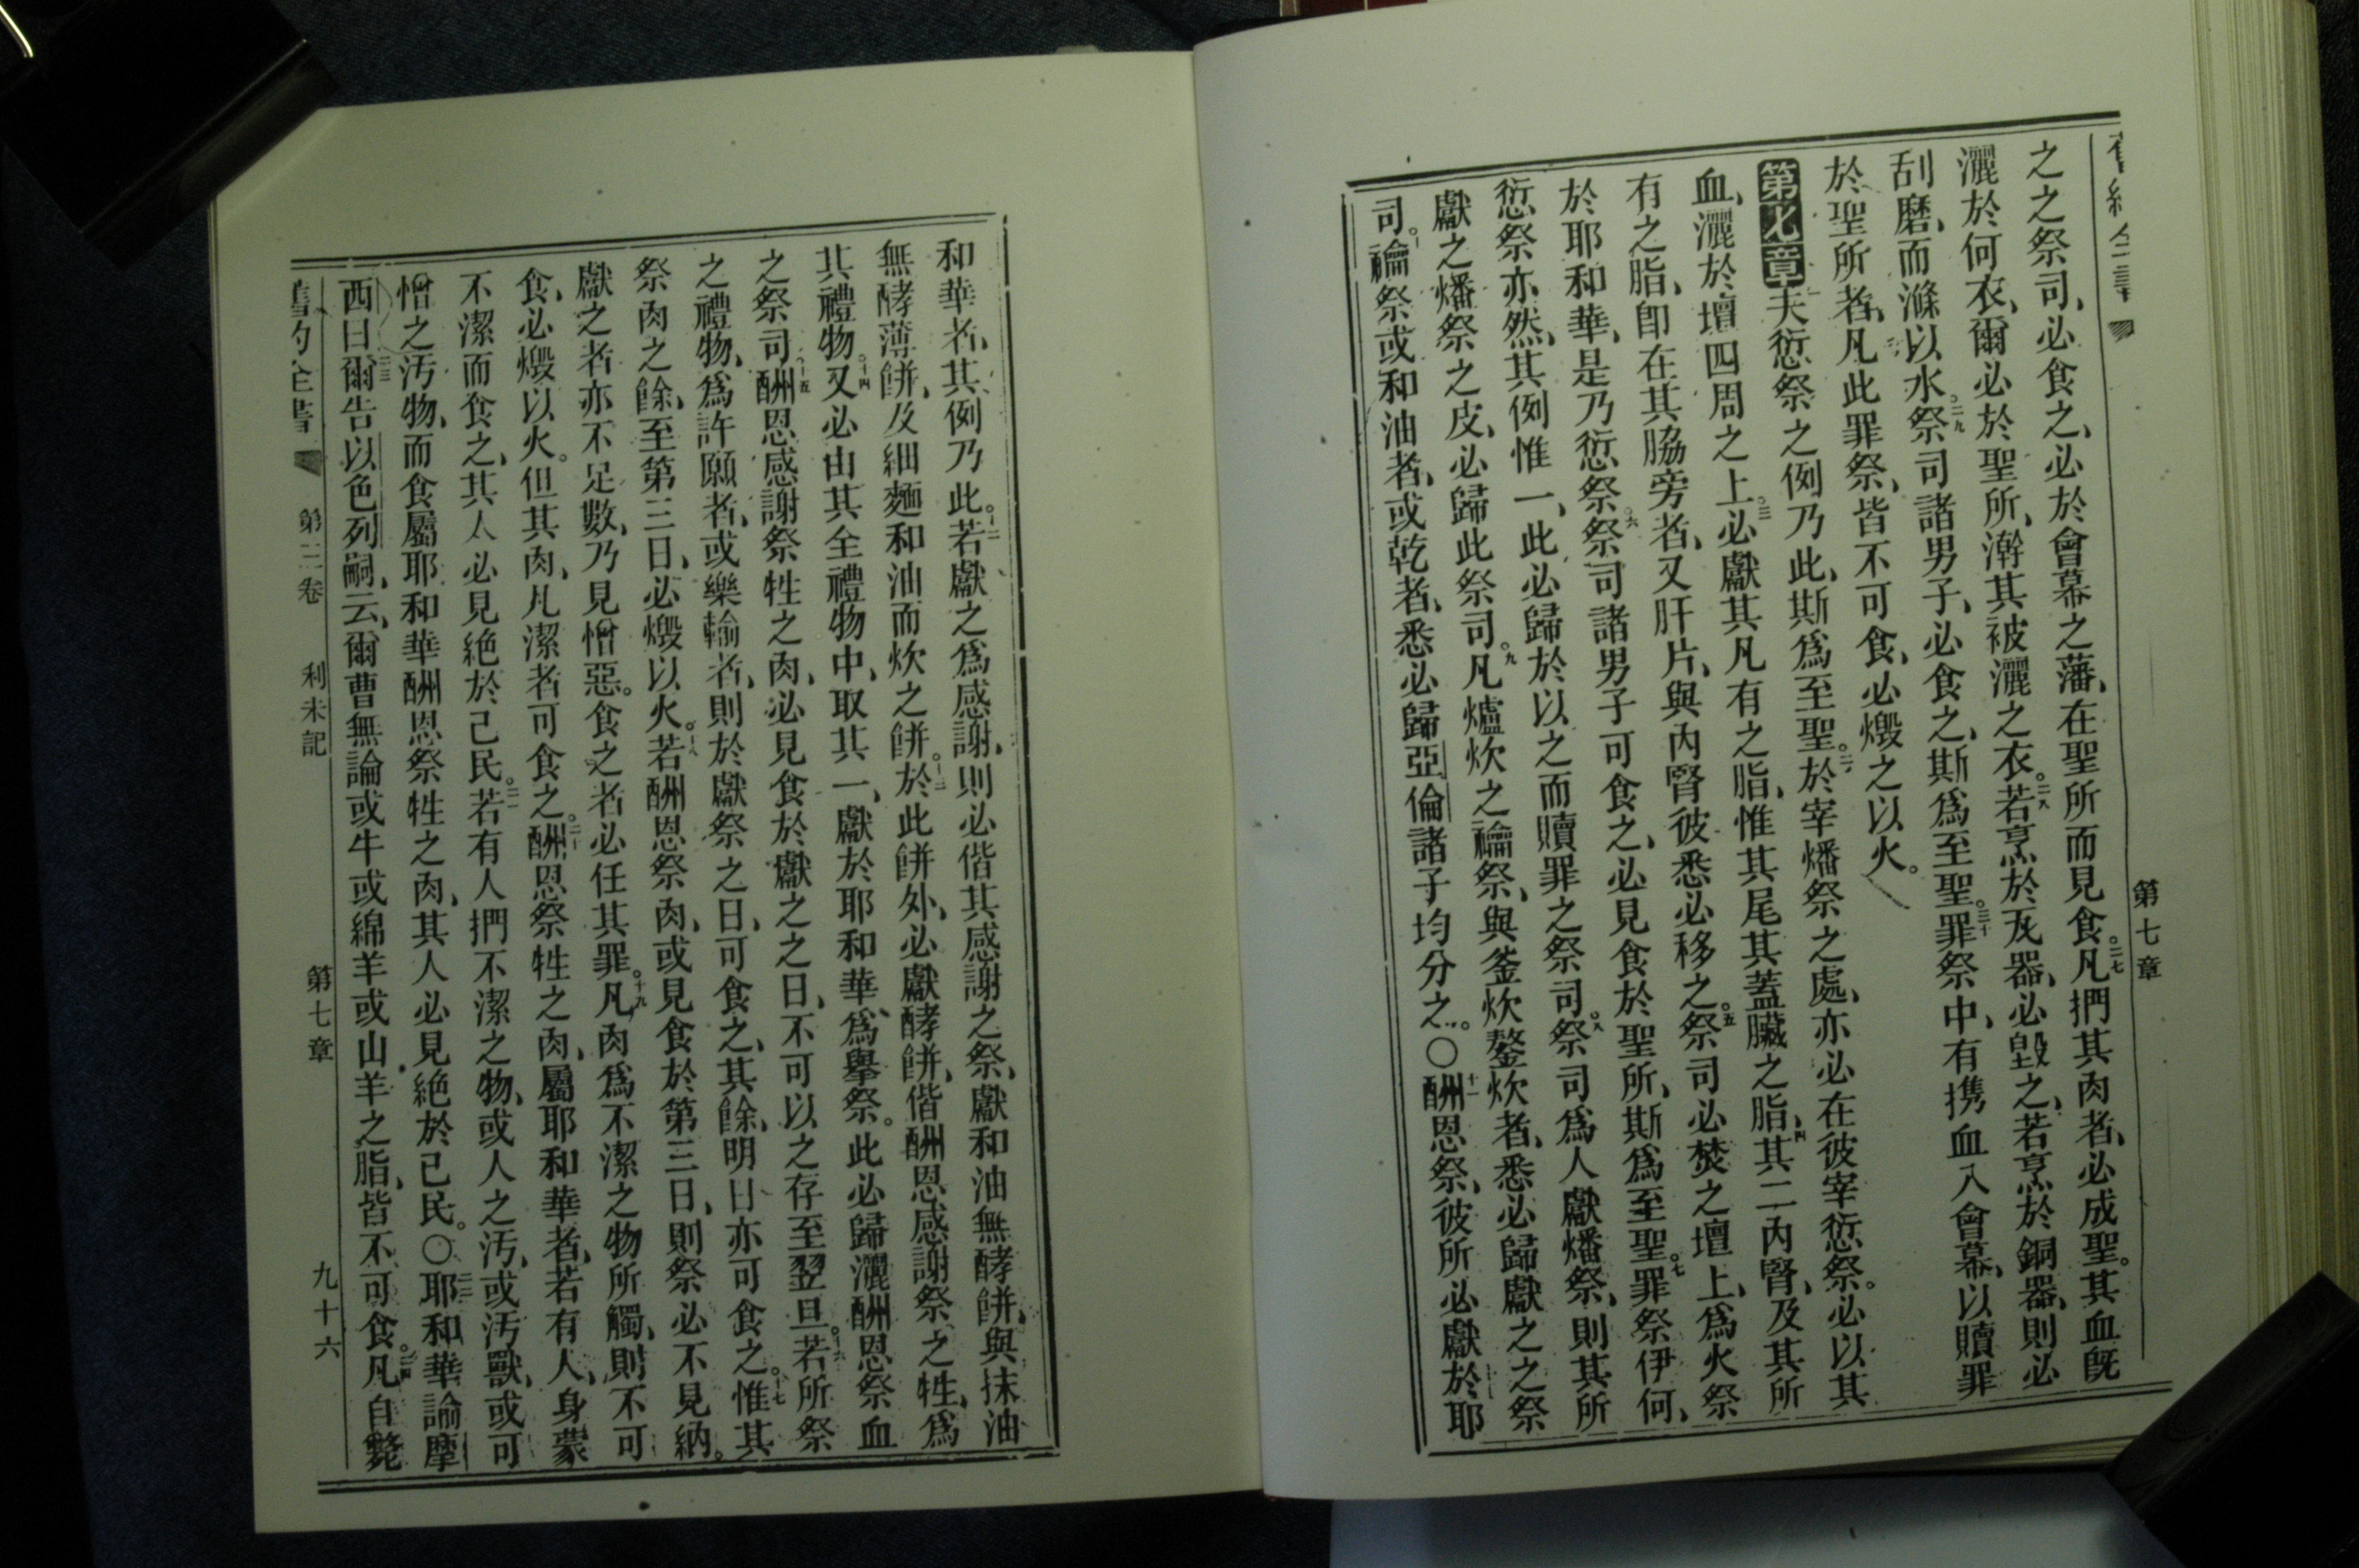 第七章
之之祭司、必食之、必於會幕之藩、在聖所而見食。二七凡捫其肉者、必成聖。其血既
灑於何衣、爾必於聖所、澣其被灑之衣。二八若烹於瓦器、必毀之、若烹於銅器、則必
刮磨、而滌以水。二九祭司諸男子、必食之、斯爲至聖。三十罪祭中、有携血入會幕、以贖罪
於聖所者、凡此罪祭、皆不可食、必燬之以火。
第七章夫愆祭之例乃此、斯爲至聖。二於宰燔祭之處、亦必在彼宰愆祭。必以其
血、灑於壇四周之上。三必獻其凡有之脂、惟其尾其蓋臟之脂、四其二內腎、及其所
有之脂、卽在其脇旁者、又肝片、與內腎彼悉必移之。五祭司必焚之壇上、爲火祭
於耶和華、是乃愆祭。六祭司諸男子可食之、必見食於聖所、斯爲至聖。七罪祭伊何、
愆祭亦然、其例惟一、此必歸於以之而贖罪之祭司。八祭司爲人獻燔祭、則其所
獻之燔祭之皮、必歸此祭司。九凡爐炊之禴祭、與釜炊鏊炊者、悉必歸獻之之祭
司。十禴祭或和油者、或乾者、悉必歸亞倫諸子均分之。○十一酬恩祭、彼所必獻於耶
和華者、其例乃此。十二若獻之爲感謝、則必偕其感謝之祭、獻和油無酵餅、與抹油
無酵薄餅、及細麵和油而炊之餅。十三於此餅外、必獻酵餅、偕酬恩感謝祭之牲、爲
其禮物。十四又必由其全禮物中、取其一、獻於耶和華、爲擧祭。此必歸灑酬恩祭血
之祭司。十五酬恩感謝祭牲之肉、必見食於獻之之日、不可以之存至翌旦。十六若所祭
之禮物、爲許願者、或樂輸者、則於獻祭之日、可食之、其餘、明日亦可食之。十七惟其
祭肉之餘、至第三日、必燬以火。十八若酬恩祭肉、或見食於第三日、則祭必不見納。
獻之者亦不足數、乃見憎惡。食之者必任其罪。十九凡肉爲不潔之物所觸、則不可
食、必燬以火。但其肉、凡潔者可食之。二十酬恩祭牲之肉、屬耶和華者、若有人、身蒙
不潔而食之、其人必見絶於己民。二一若有人捫不潔之物、或人之汚、或汚獸、或可
憎之汚物、而食屬耶和華酬恩祭牲之肉、其人必見絶於己民。○二二耶和華諭摩
西曰二三爾告以色列嗣、云、爾曹無論或牛或綿羊或山羊之脂、皆不可食。二四凡自斃
舊約全書 第三卷 利未記 第七章 九十六